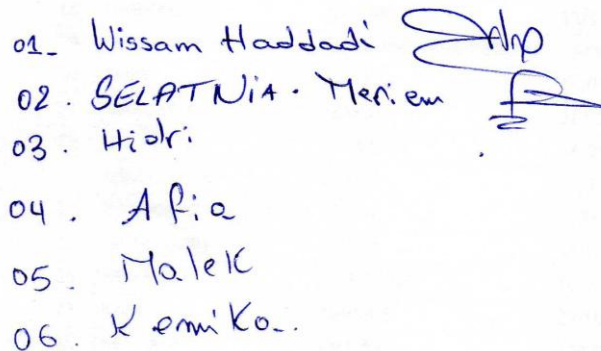 01_ Wissam Haddadi
02. SELATNIA. Meriem
03. Hidri
04. Afia
05. Malek
06. Kemiko..